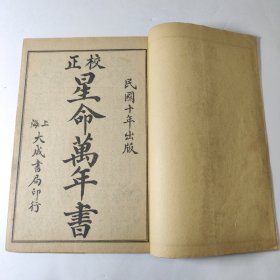 民國十年出版
校正
星命萬年書
上海大成書局印行